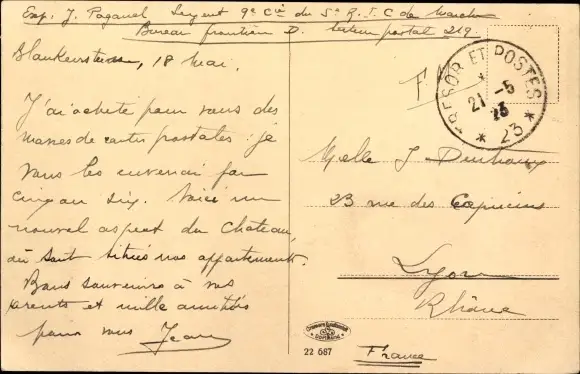 Exp. J. Paganel Sergent 9e Cie du 5e R. T. C de Marche
Bureau frontière D. Secteur postal 219.
18 mai.
J'ai acheté pour vous des
masses de cartes postales : je
vous les enverrai par
cinq ou six. Voici un
nouvel aspect du Chateau,
où sont situés nos appartements.
Bons souvenirs à vos
parents et mille amitiés
pour vous Jean
F.
TRESOR ET POSTES
21 -5
23
* 23 *
Melle J
23 rue des Capucins
Lyon
Rhône
France
22 687